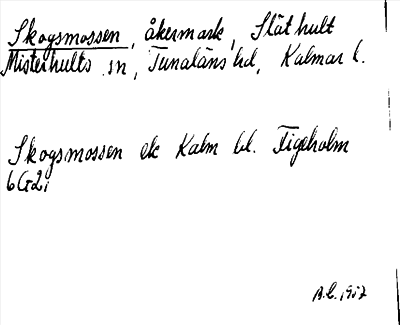 Skogsmossen, åkermark, Släthult
Misterhults sn, Tunaläns hd, Kalmar l.
Skogsmossen ek Kalm bl. Figeholm
6G2i
1957